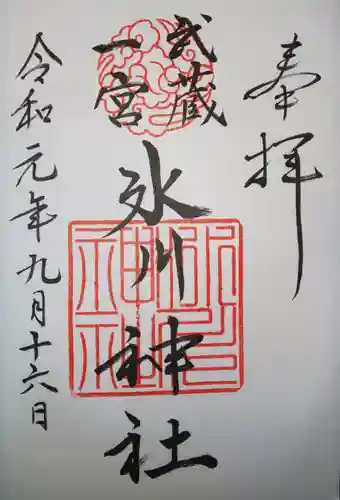 奉拝
武蔵
一宮
氷川神社
令和元年九月十六日
氷川
神社